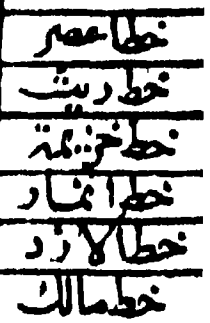 خط اعصر
خط ريث
خط خزيمة
خط انمار
خط الازد
خط مالك